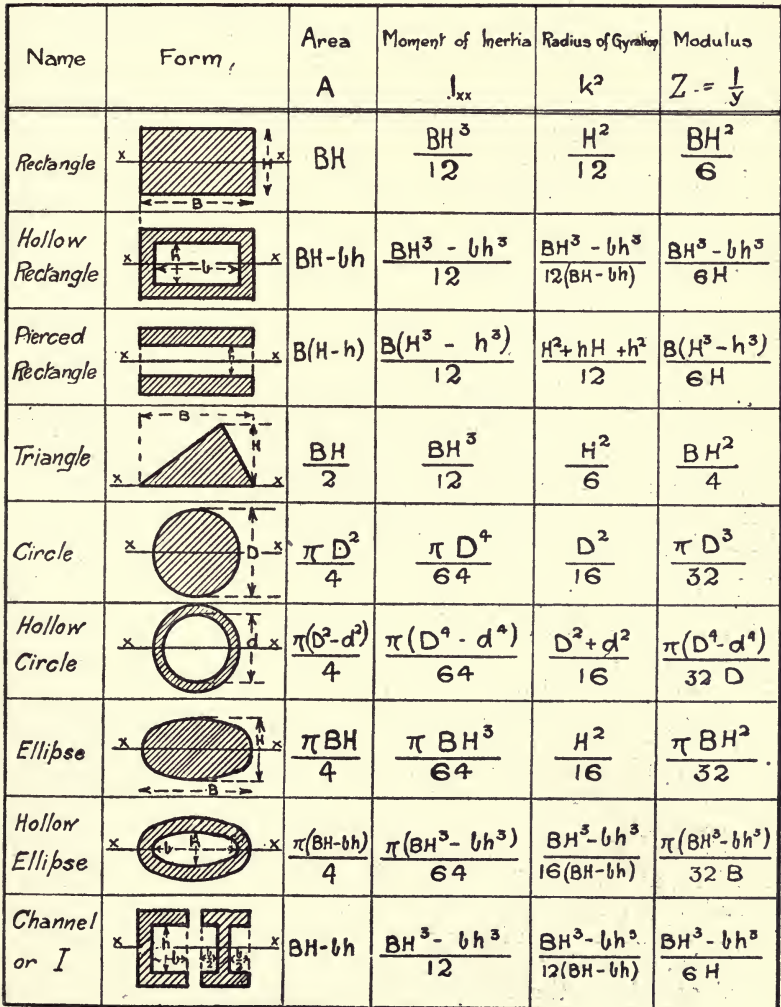 Name Form, Area A Moment of Inertia Iₓₓ Radius of Gyration k² Modulus Z = I/y
Rectangle x x H B BH BH³/12 H²/12 BH²/6
Hollow Rectangle x x h b BH-bh BH³ - bh³/12 BH³ - bh³/12(BH-bh) BH³-bh³/6H
Pierced Rectangle h B(H-h) B(H³ - h³)/12 H²+hH+h²/12 B(H³-h³)/6H
Triangle B H x x BH/2 BH³/12 H²/6 BH²/4
Circle x x D πD²/4 πD⁴/64 D²/16 πD³/32
Hollow Circle x x d π(D²-d²)/4 π(D⁴-d⁴)/64 D²+d²/16 π(D⁴-d⁴)/32 D
Ellipse x x H B πBH/4 πBH³/64 H²/16 πBH²/32
Hollow Ellipse x x b h π(BH-bh)/4 π(BH³-bh³)/64 BH³-bh³/16(BH-bh) π(BH³-bh³)/32 B
Channel or I x x h b b/2 b/2 BH-bh BH³-bh³/12 BH³-bh³/12(BH-bh) BH³-bh³/6 H